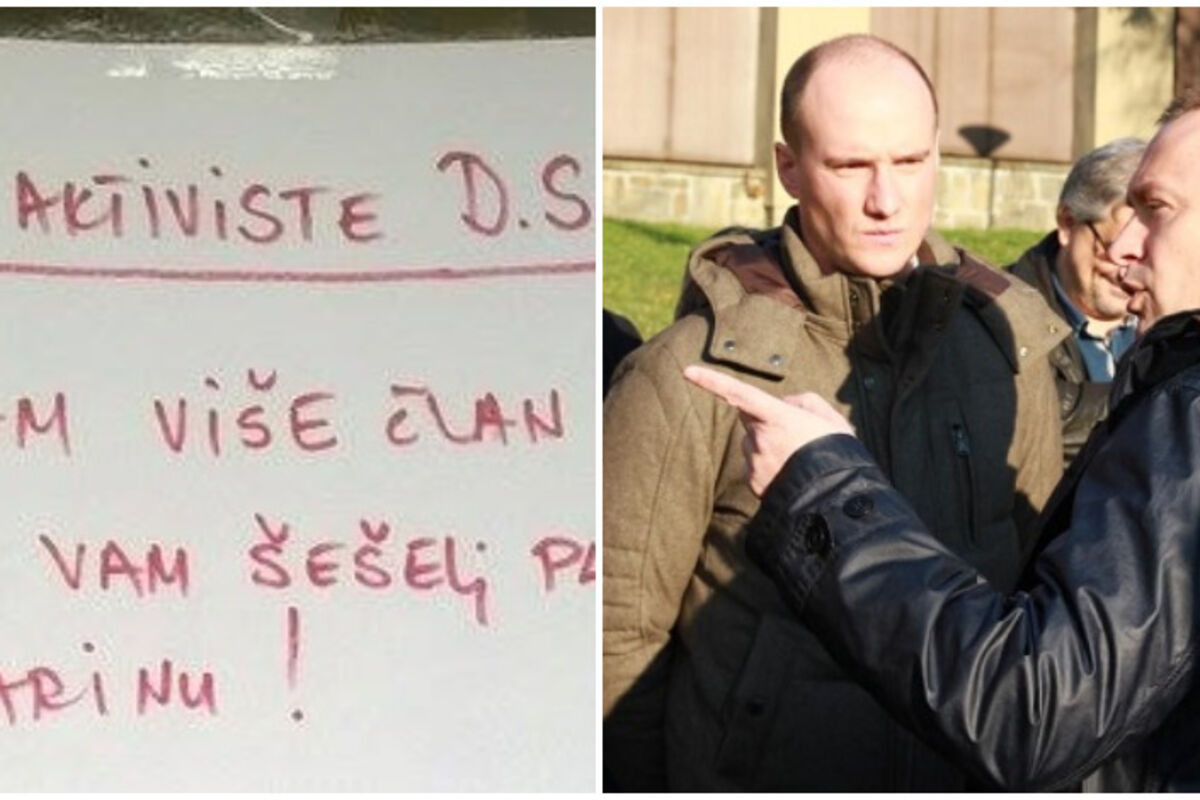 AKTIVISTE D.S
M VIŠE ČLAN
VAM ŠEŠELJ
ARINU !